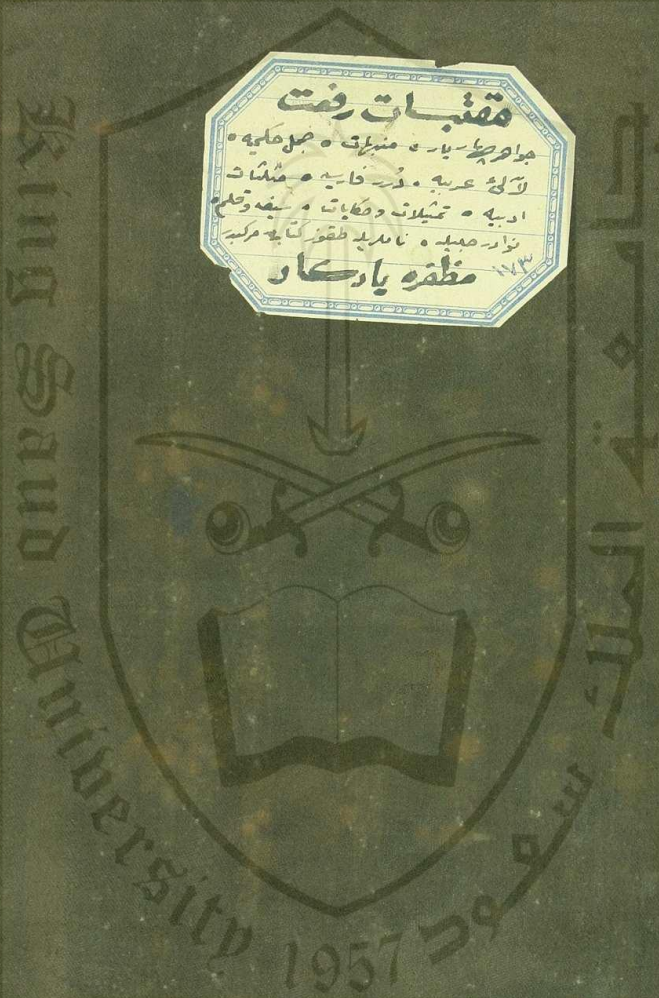 مقتبسات رفعت
جواهر چهاریار ٠ منبهات ٠ جمل حكمیه ٠
لآلئ عربیه ٠ درر فارسیه ٠ مثلثات
ادبیه ٠ تمثیلات و حكایات ٠ سیف و قلم ٠
نوادر جلیله ٠ ناملریله طقوز كتابدن مركبدر
مظفره یادگار
١٧٣
King Saud University 1957
جامعة الملك سعود